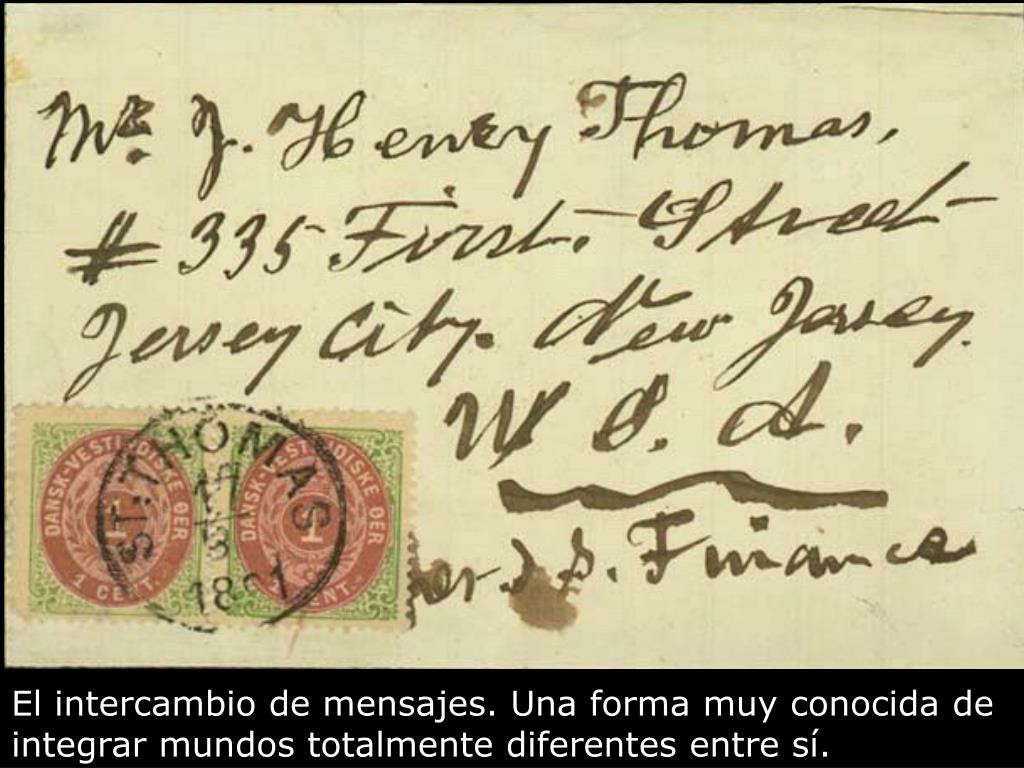 Mr. J. Henry Thomas,
# 335 First. Street
Jersey City. New Jersey.
U S. A.
per S. S. Finance
DANSK-VESTINDISKE ØER
1 CENT.
DANSK-VESTINDISKE ØER
1 CENT.
ST: THOMAS
17
El intercambio de mensajes. Una forma muy conocida de
integrar mundos totalmente diferentes entre sí.